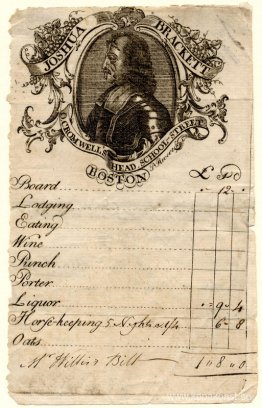 JOSHUA BRACKETT
O. CROMWELLS HEAD SCHOOL STREET
BOSTON
£ S d
Board 12
Lodging
Eating
Wine
Punch
Porter
Liquor 9 4
Horse keeping 5 Nights at 1/4 6 8
Oats
Mr Bill 1 8 0